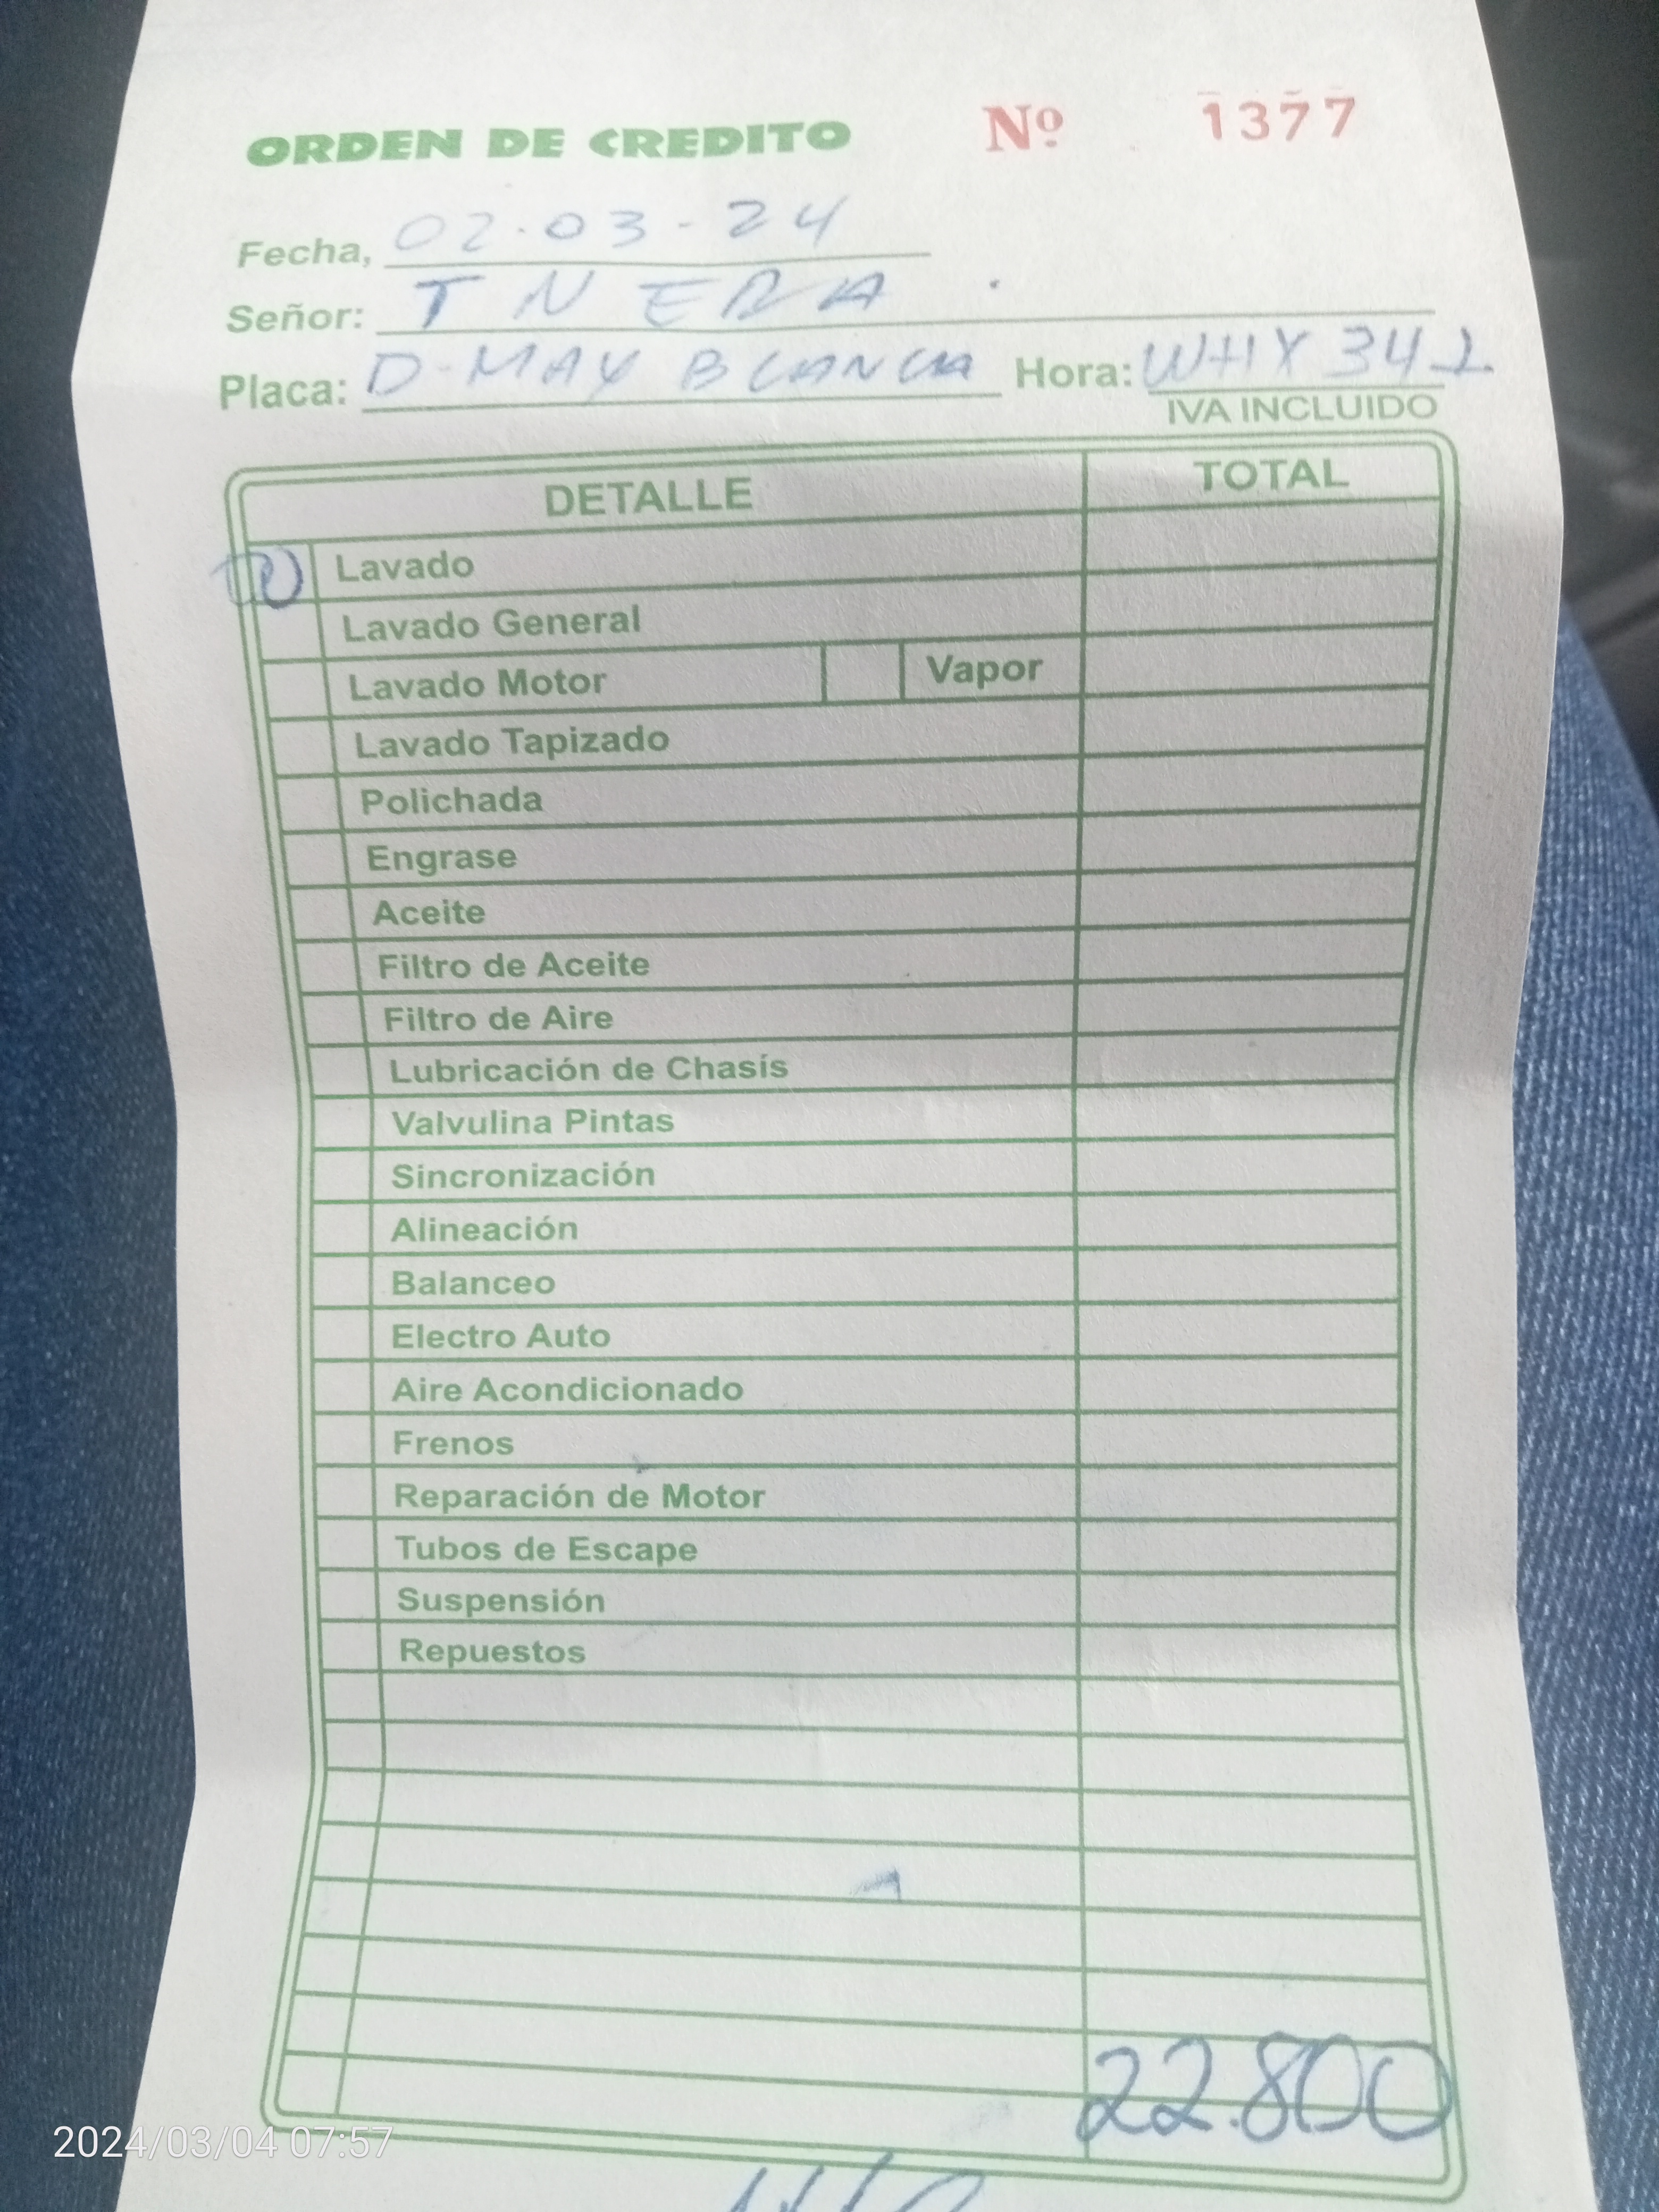 ORDEN DE CREDITO Nº 1377
Fecha, 02-03-24
Señor: TNERA
Placa: D-MAX BLANCA Hora: WHX 342
IVA INCLUIDO
DETALLE TOTAL
Lavado
Lavado General
Lavado Motor Vapor
Lavado Tapizado
Polichada
Engrase
Aceite
Filtro de Aceite
Filtro de Aire
Lubricación de Chasís
Valvulina Pintas
Sincronización
Alineación
Balanceo
Electro Auto
Aire Acondicionado
Frenos
Reparación de Motor
Tubos de Escape
Suspensión
Repuestos
22.800
2024/03/04 07:57